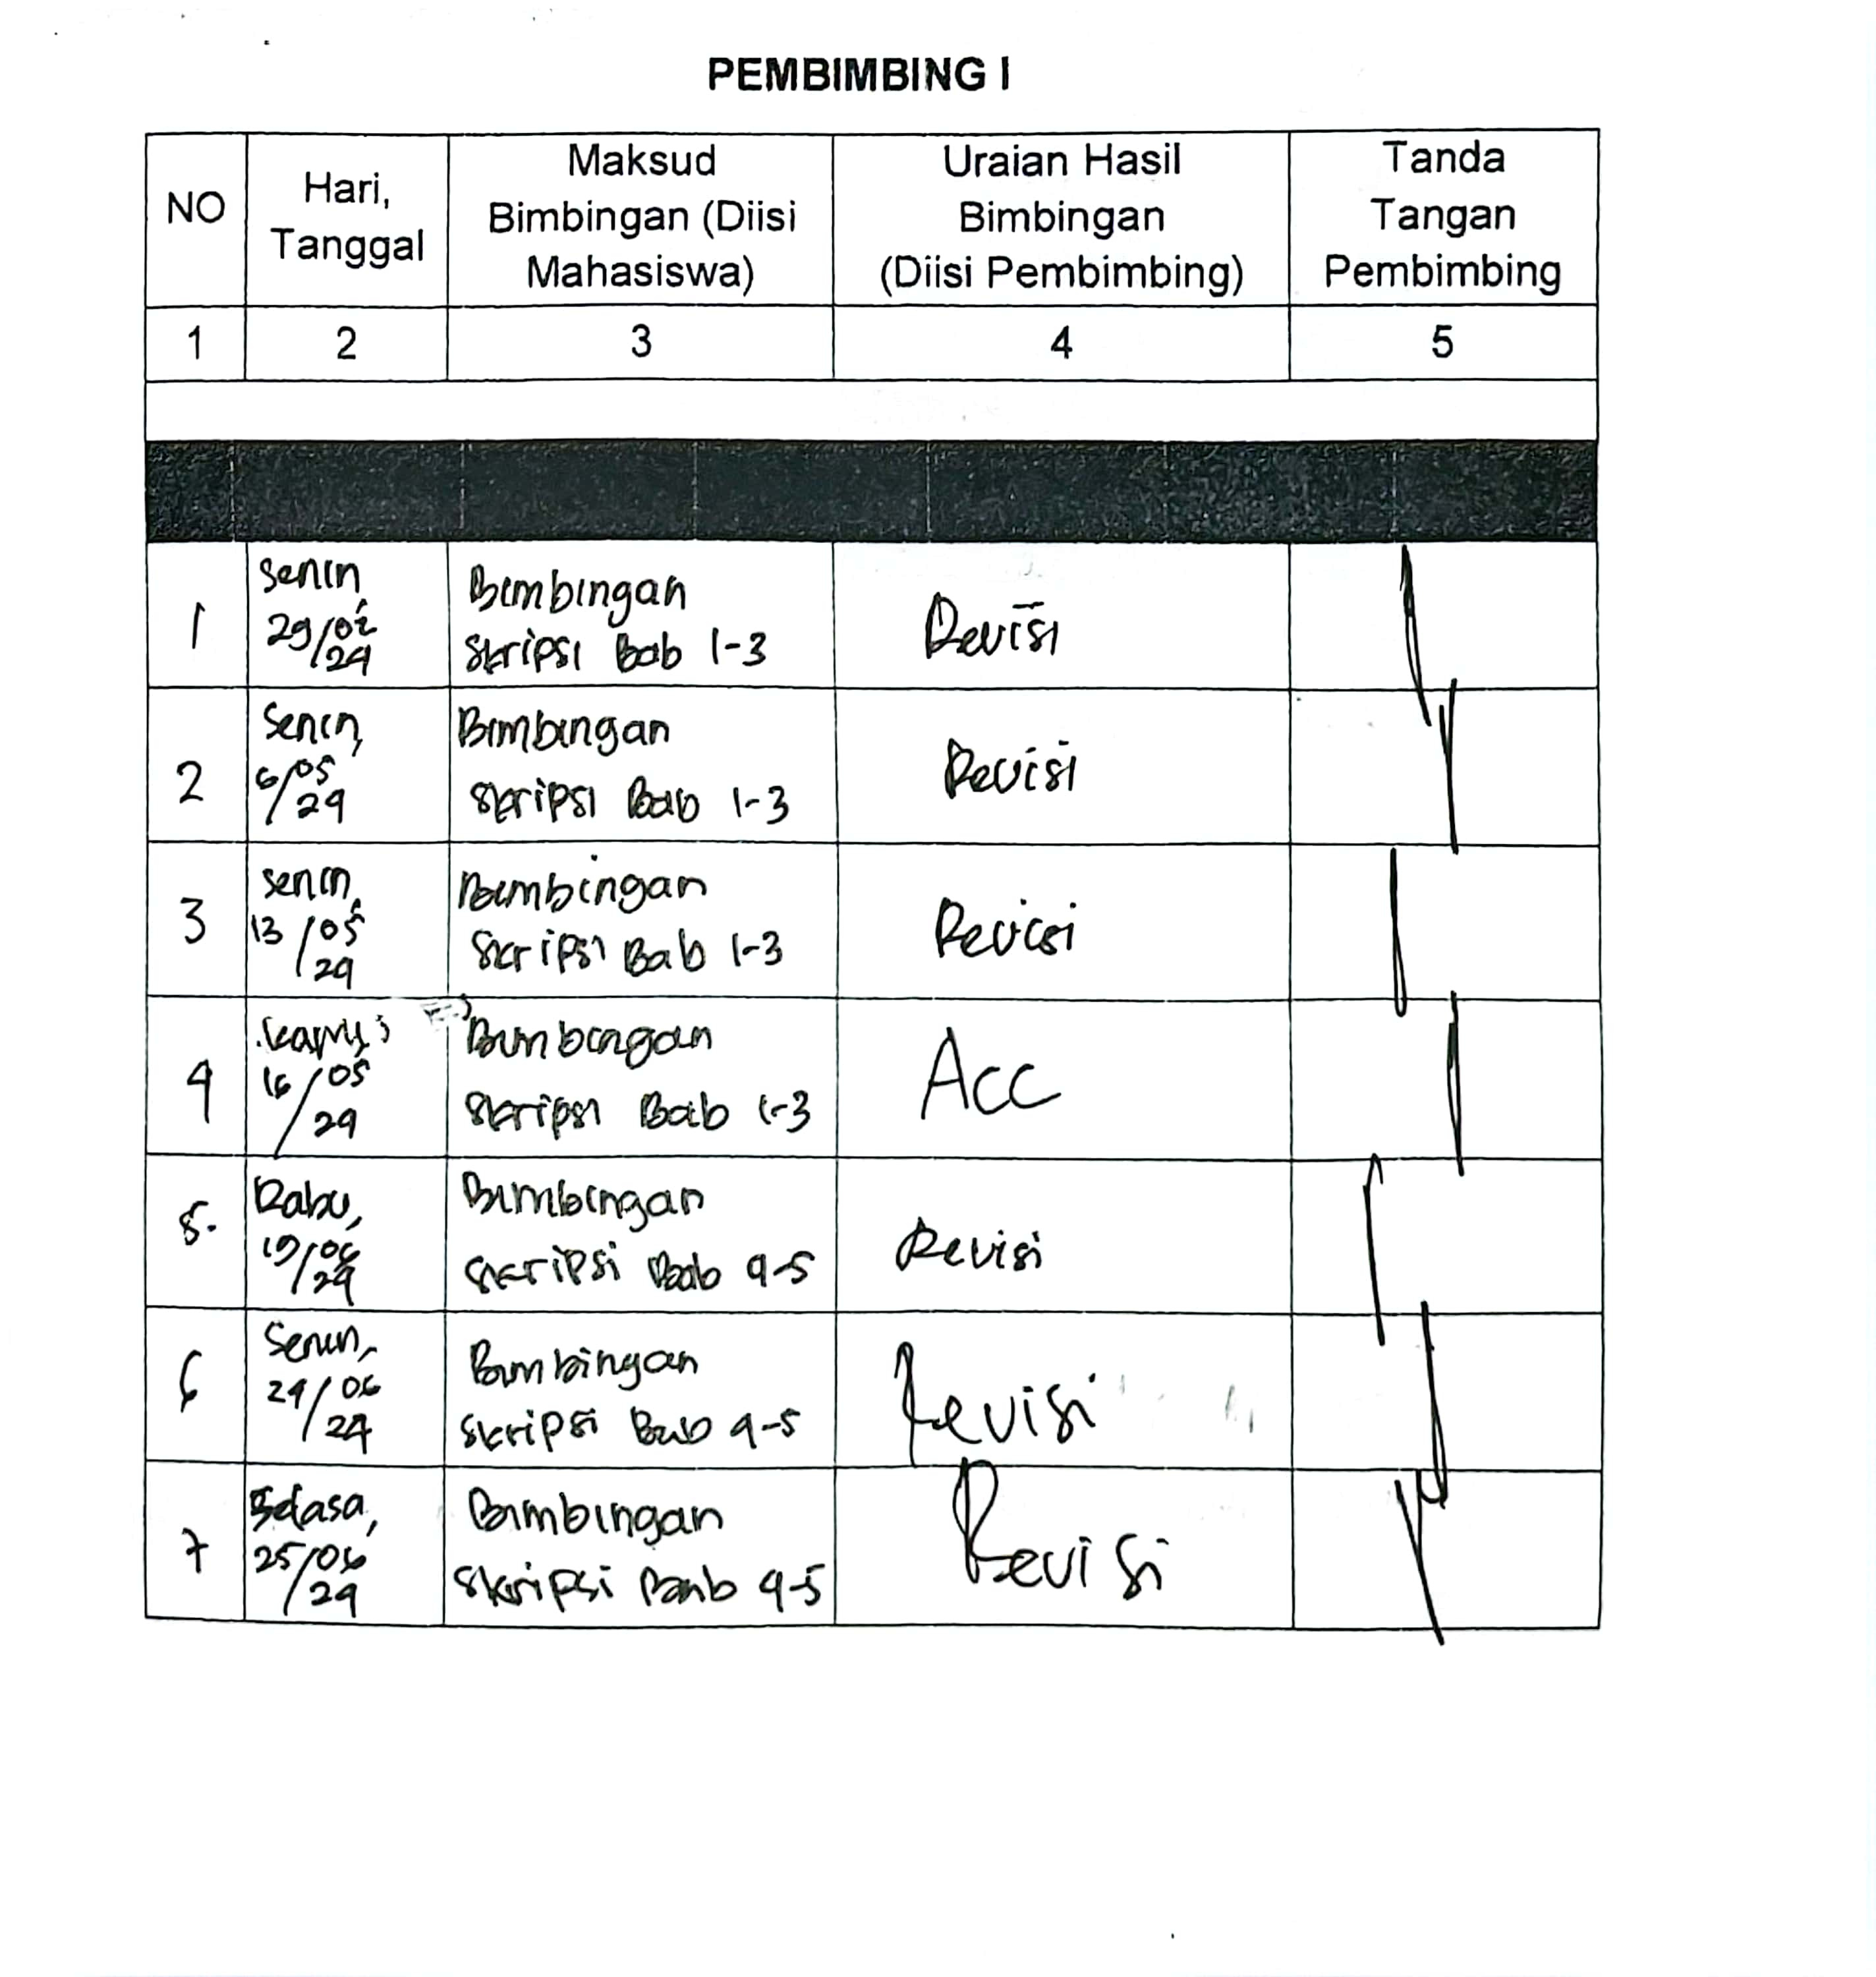 PEMBIMBING I
NO
Hari,
Tanggal
Maksud
Bimbingan (Diisi
Mahasiswa)
Uraian Hasil
Bimbingan
(Diisi Pembimbing)
Tanda
Tangan
Pembimbing
1 2 3 4 5
1
Senin
29/
/24
Bimbingan
Skripsi Bab 1-3
Revisi
2
Senin,
6/05
/24
Bimbingan
Skripsi Bab 1-3
Revisi
3
Senin,
13/05
/24
Bimbingan
Skripsi Bab 1-3
Revisi
4
Kamis
16/05
/24
Bimbingan
Skripsi Bab 1-3
Acc
5.
Rabu,
19/06
/24
Bimbingan
Skripsi Bab 4-5
Revisi
6
Senin,
24/06
/24
Bimbingan
Skripsi Bab 4-5
Revisi
7
Selasa,
25/06
/24
Bimbingan
Skripsi Bab 4-5
Revisi